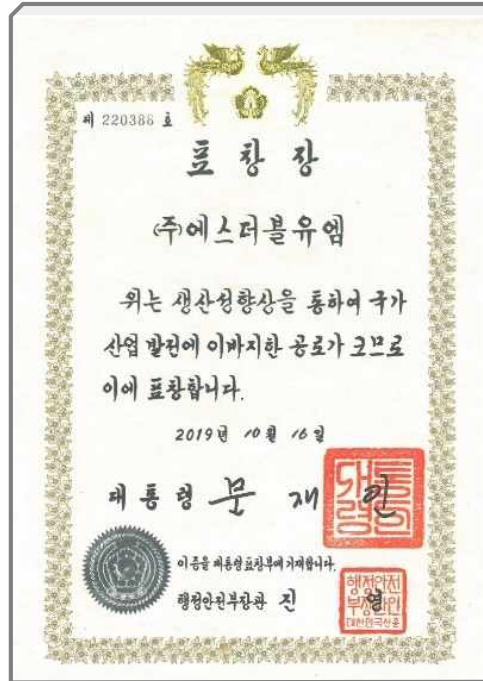 제 220386 호
표창장
(주)에스더블유엠
위는 생산성향상을 통하여 국가
산업 발전에 이바지한 공로가 크므로
이에 표창합니다.
2019년 10월 16일
대통령 문 재 인
대통령의인
이증을 대통령표창부에 기재합니다.
행정안전부장관 진 영
행정안전
부장관인